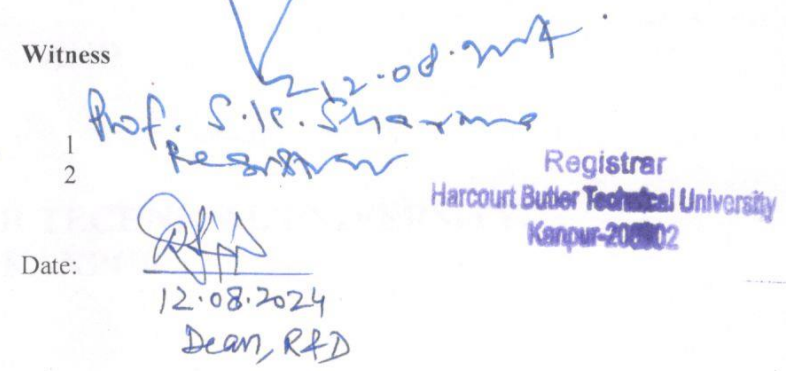 Witness
12.08.2024
Prof. S.K. Sharma
1
Registrar
2
Registrar
Harcourt Butler Technical University
Kanpur-208002
Date:
12.08.2024
Dean, R&D